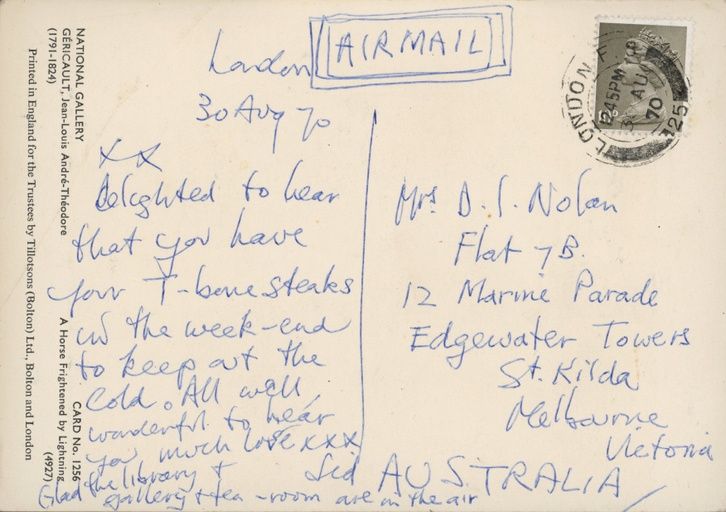 NATIONAL GALLERY
GÉRICAULT, Jean-Louis André-Théodore
(1791-1824)
Printed in England for the Trustees by Tillotsons (Bolton) Ltd., Bolton and London
A Horse Frightened by Lightning
CARD No. 1256
(4927)
AIRMAIL
London
30 Aug 70
xx
delighted to hear
that you have
your T-bone steaks
in the week-end
to keep out the
cold. All well,
wonderful to hear
you much love xxx
Sid
Glad the library +
gallery + tea-room are on the air
Mrs D. S. Nolan
Flat 7B.
12 Marine Parade
Edgewater Towers
St. Kilda
Melbourne
Victoria
AUSTRALIA
LONDON
1245PM
AU
70